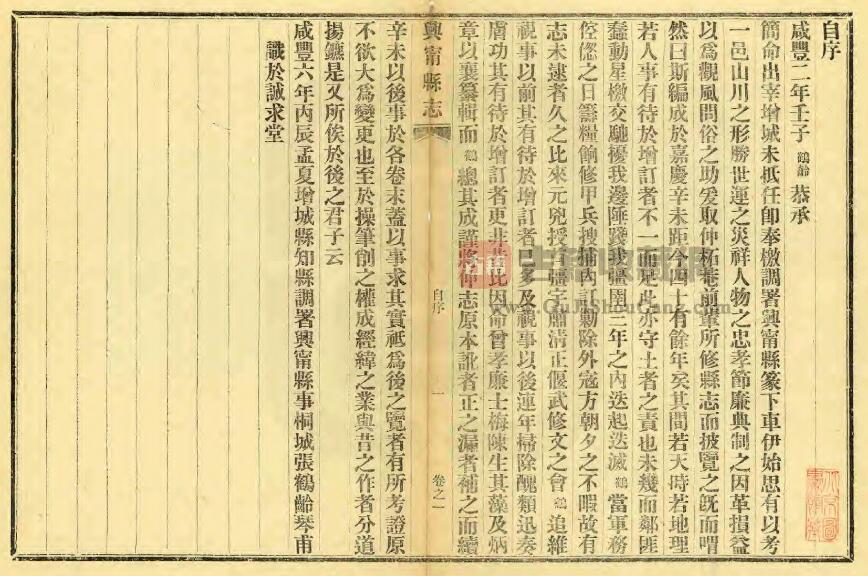 自序
咸豐二年壬子鶴齡恭承
簡命出宰增城未抵任卽奉檄調署興甯縣篆下車伊始思有以考
一邑山川之形勝世運之災祥人物之忠孝節廉典制之因革損益
以爲觀風問俗之助爰取仲柘菴前輩所修縣志而披覽之旣而喟
然曰斯編成於嘉慶辛未距今四十有餘年矣其間若天時若地理
若人事有待於增訂者不一而足此亦守土者之責也未幾而鄰匪
蠢動星檄交馳擾我邊陲踐我疆圉三年之內迭起迭滅鶴當軍務
倥傯之日籌糧餉修甲兵搜捕內訌勦除外寇方朝夕之不暇故有
志未逮者久之比來元兇授首疆宇肅清正偃武修文之會鶴追維
視事以前其有待於增訂者已多及視事以後連年掃除醜類迅奏
膚功其有待於增訂者更非昔比因命曾孝廉士梅陳生其藻及炳
章以襄纂輯而鶴總其成謹將仲志原本訛者正之漏者補之而續
興甯縣志
自序
一
卷之一
辛未以後事於各卷末蓋以事求其實祗爲後之覽者有所考證原
不欲大爲變更也至於操筆削之權成經緯之業與昔之作者分道
揚鑣是又所俟於後之君子云
咸豐六年丙辰孟夏增城縣知縣調署興甯縣事桐城張鶴齡琴甫
識於誠求堂
www.GuJiShouCang.com